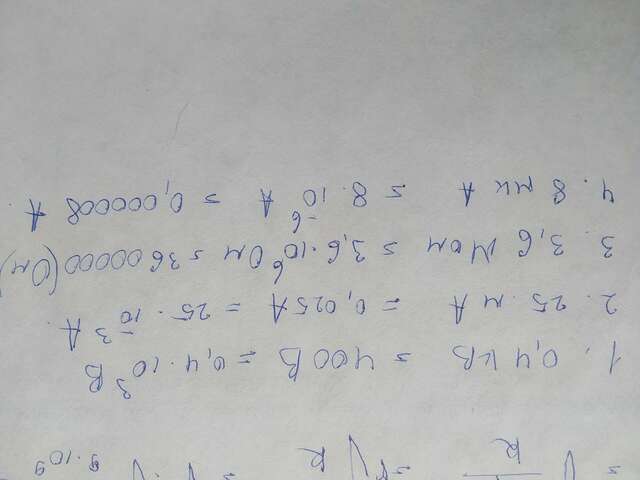 = V/R = √R = V · V 9·10⁹
1. 0,4 кВ = 400 В = 0,4 · 10³ В
2. 25 мА = 0,025 А = 25 · 10⁻³ А.
3. 3,6 МОм = 3,6·10⁶ Ом = 3600000 (Ом)
4. 8 мкА = 8·10⁻⁶ А = 0,000008 А.